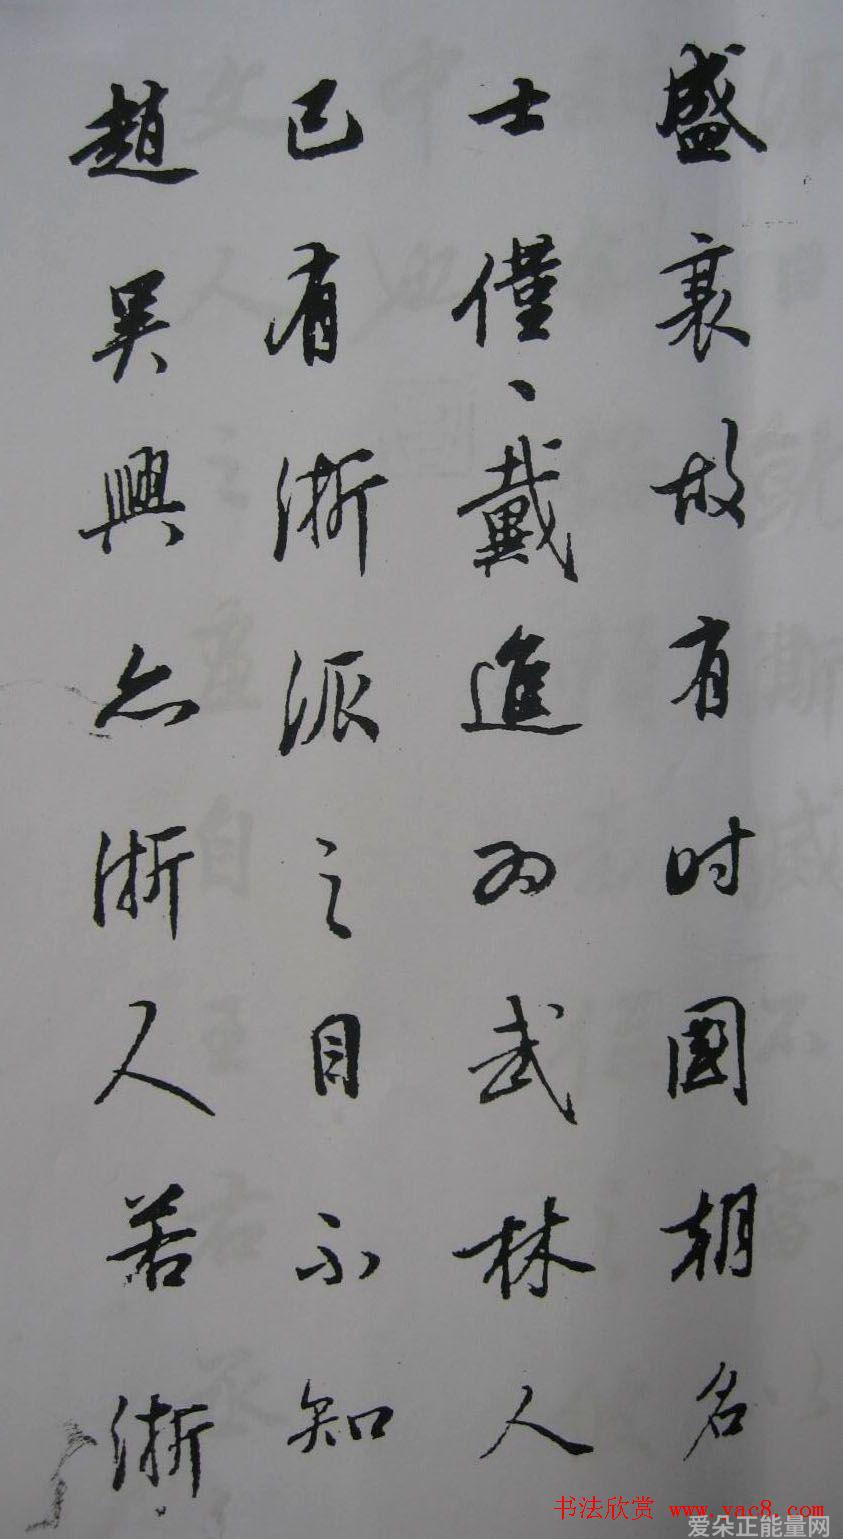 盛衰故有时國朝名
士僅〻戴進为武林人
已有浙派之目不知
趙吴興亦浙人若浙
书法欣赏 www.yac8.com
爱朵正能量网